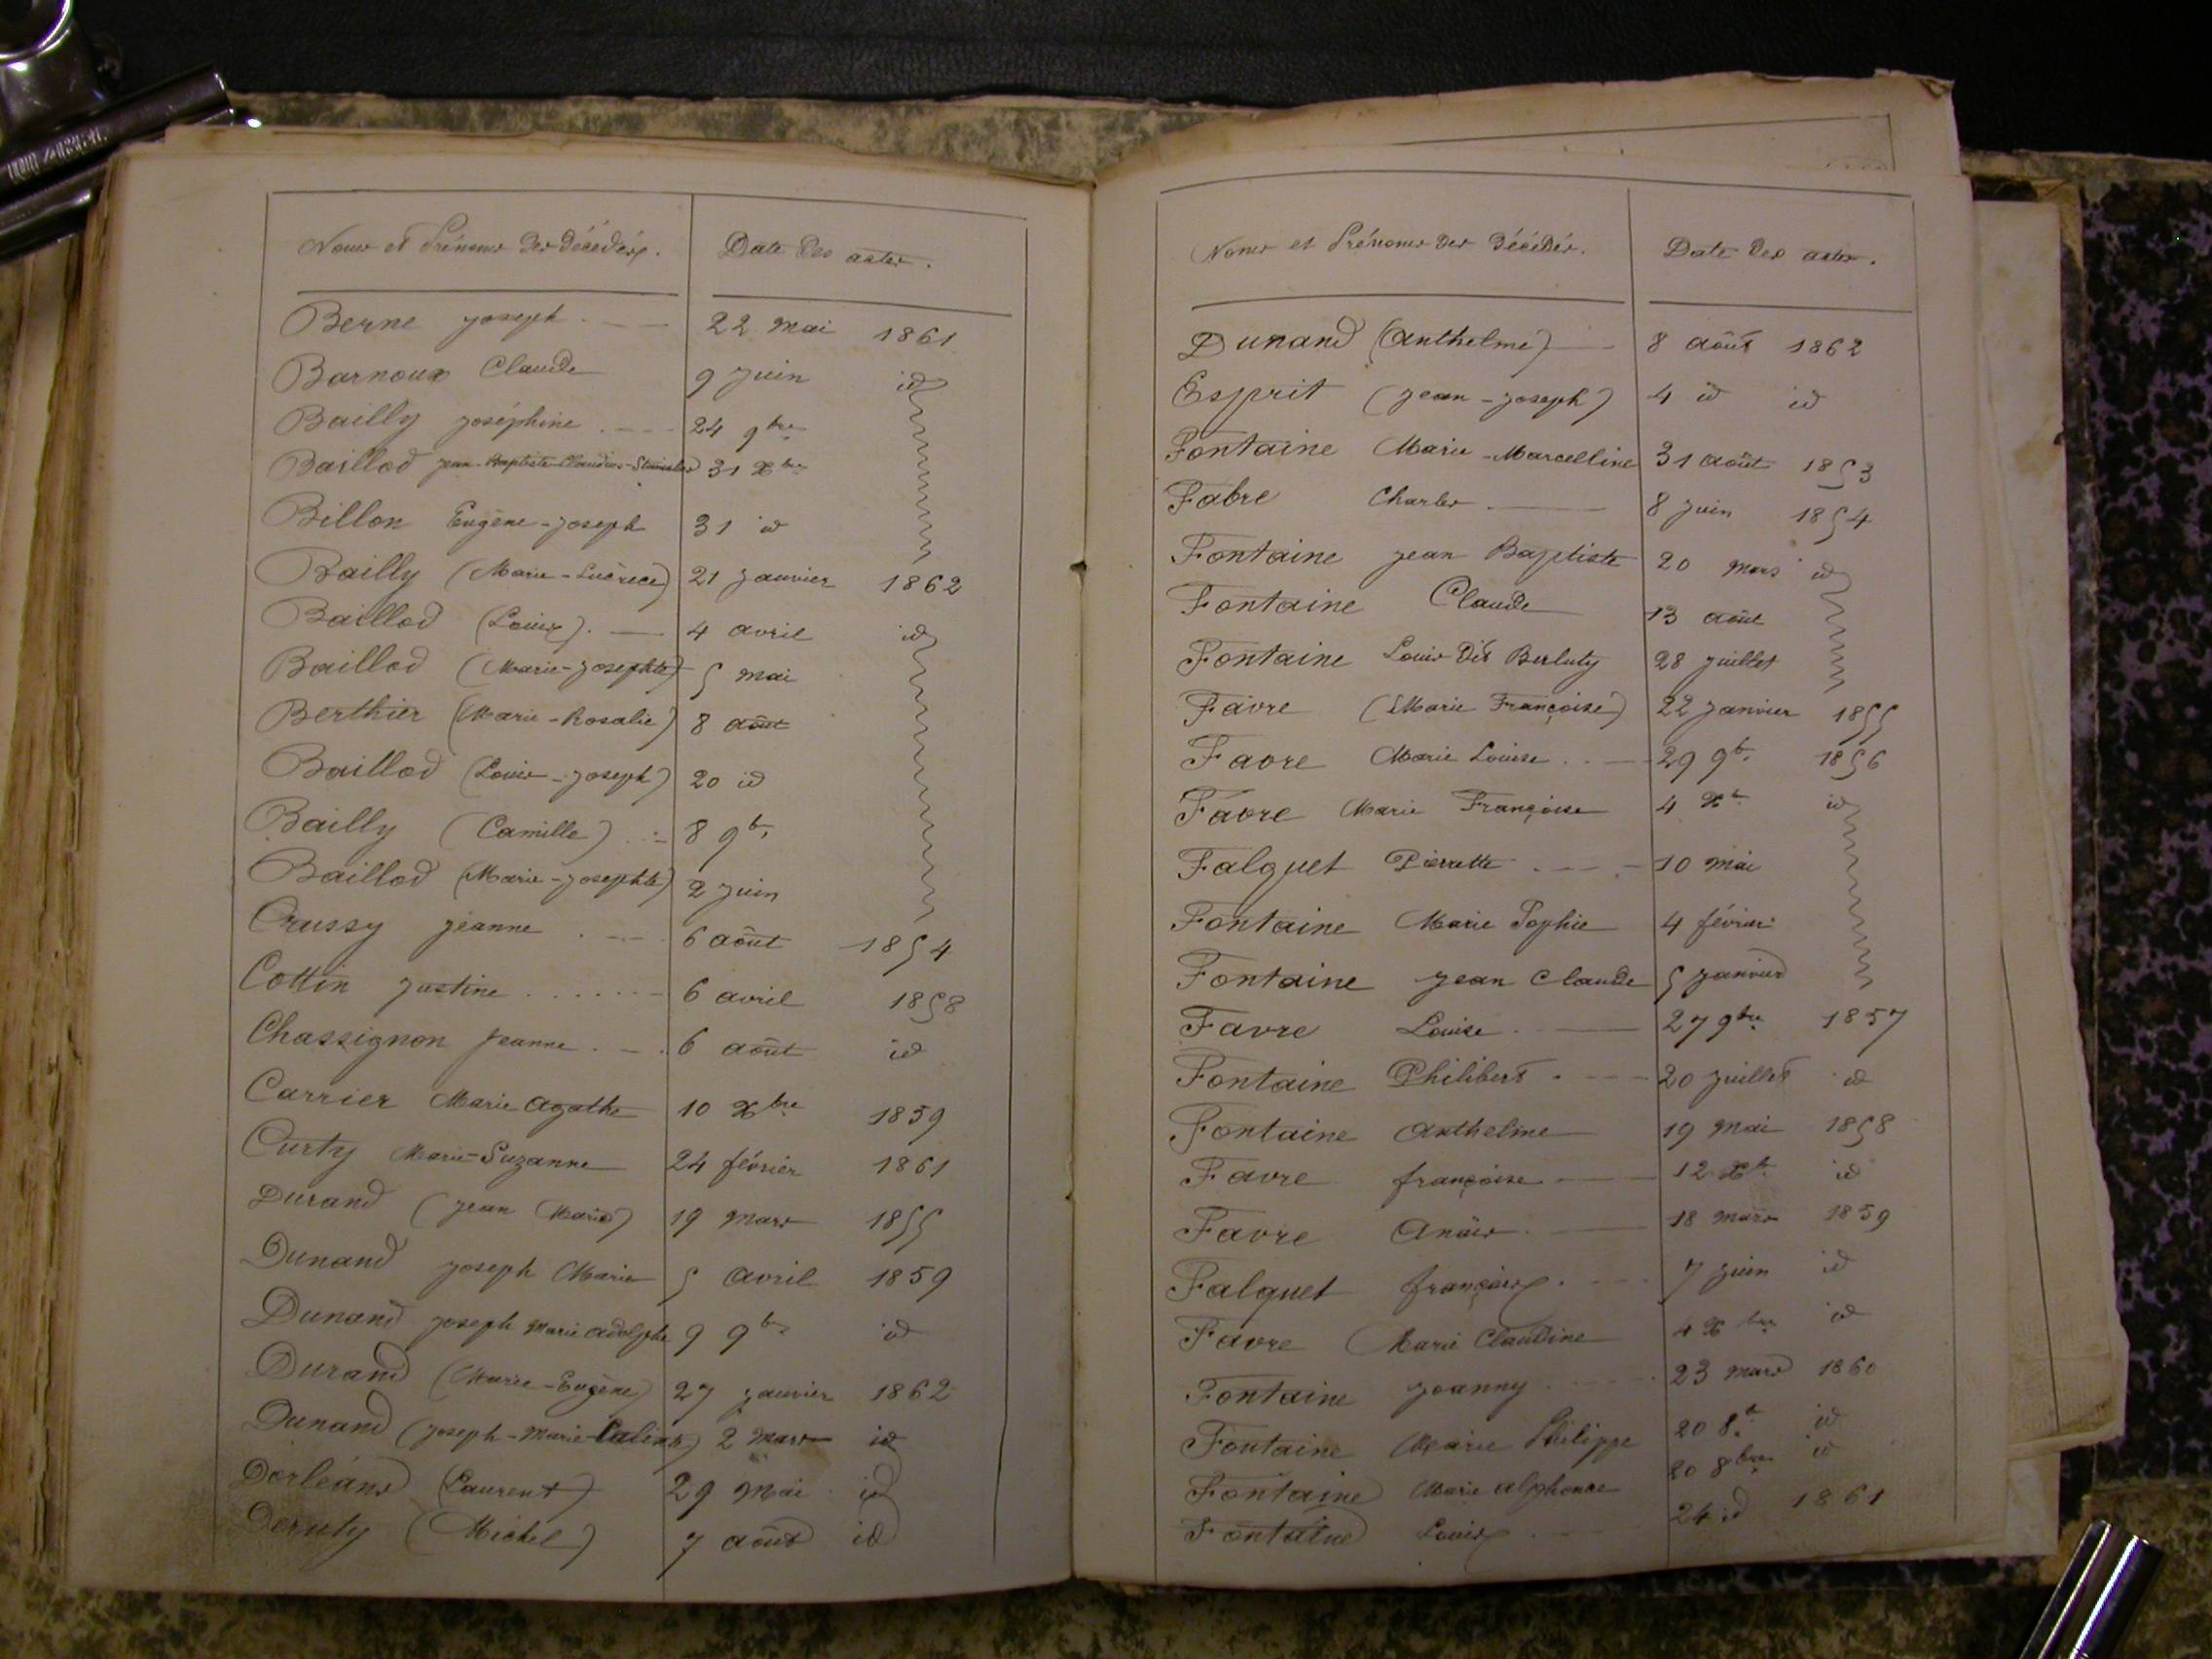 Noms et Prénoms des décédés. Date des actes.
Berne joseph 22 mai 1861
Barnoux Claude 9 juin id
Bailly joséphine 24 9bre
Baillod jean-Baptiste-Claudius-Stanislas 31 Xbre
Billon Eugène-joseph 31 id
Bailly (Marie-Lucrèce) 21 janvier 1862
Baillod (Louis). 4 avril id
Baillod (Marie-josephte) 5 mai
Berthier (Marie-Rosalie) 8 août
Baillod (Louis-joseph) 20 id
Bailly (Camille) 8 9bre
Baillod (Marie-josephte) 2 juin
Crussy jeanne 6 août 1854
Cottin justine 6 avril 1858
Chassignon jeanne 6 août id
Carrier Marie agathe 10 Xbre 1859
Curty Marie-Suzanne 24 février 1861
Durand (jean Marie) 19 mars 1855
Dunand joseph Marie 5 avril 1859
Dunand joseph Marie adolphe 9 9bre id
Durand (Marie-Eugène) 27 janvier 1862
Dunand (joseph-Marie-) 2 mars id
Dorléans (Laurent) 29 mai id
Deruty (Michel) 7 août id
Noms et Prénoms des décédés. Date des actes.
Dunand (Anthelme) 8 août 1862
Esprit (jean-joseph) 4 id id
Fontaine Marie-Marcelline 31 août 1853
Fabre Charles 8 juin 1854
Fontaine jean Baptiste 20 mars id
Fontaine Claude 13 août
Fontaine Louis dit Berluty 28 juillet
Favre (Marie Françoise) 22 janvier 1855
Favre Marie Louise 29 9b. 1856
Favre Marie Françoise 4 Xb. id
Falquet Pierrette 10 mai
Fontaine Marie Sophie 4 février
Fontaine jean Claude 5 janvier
Favre Louise 27 9bre 1857
Fontaine Philibert 20 juillet id
Fontaine Anthelme 19 mai 1858
Favre françoise 12 Xb. id
Favre Anaïs 18 mars 1859
Falquet françois 7 juin id
Favre Marie Claudine 4 Xbre id
Fontaine joanny 23 mars 1860
Fontaine Marie Philippe 20 8b. id
Fontaine Marie alphonse 20 8bre id
Fontaine Louis 24 id 1861